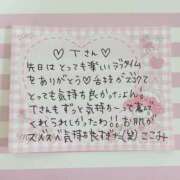 ♡ Tさん ♡
先日はとっても楽しいラブタイム
をありがとう♡舌技がスゴクて
とっても気持ち良かったよん！
Tさんもずっと気持ちーって喜んで
くれてうれしかったわ!!お肌が
スベスベ気持ち良すぎた(笑)ここみ